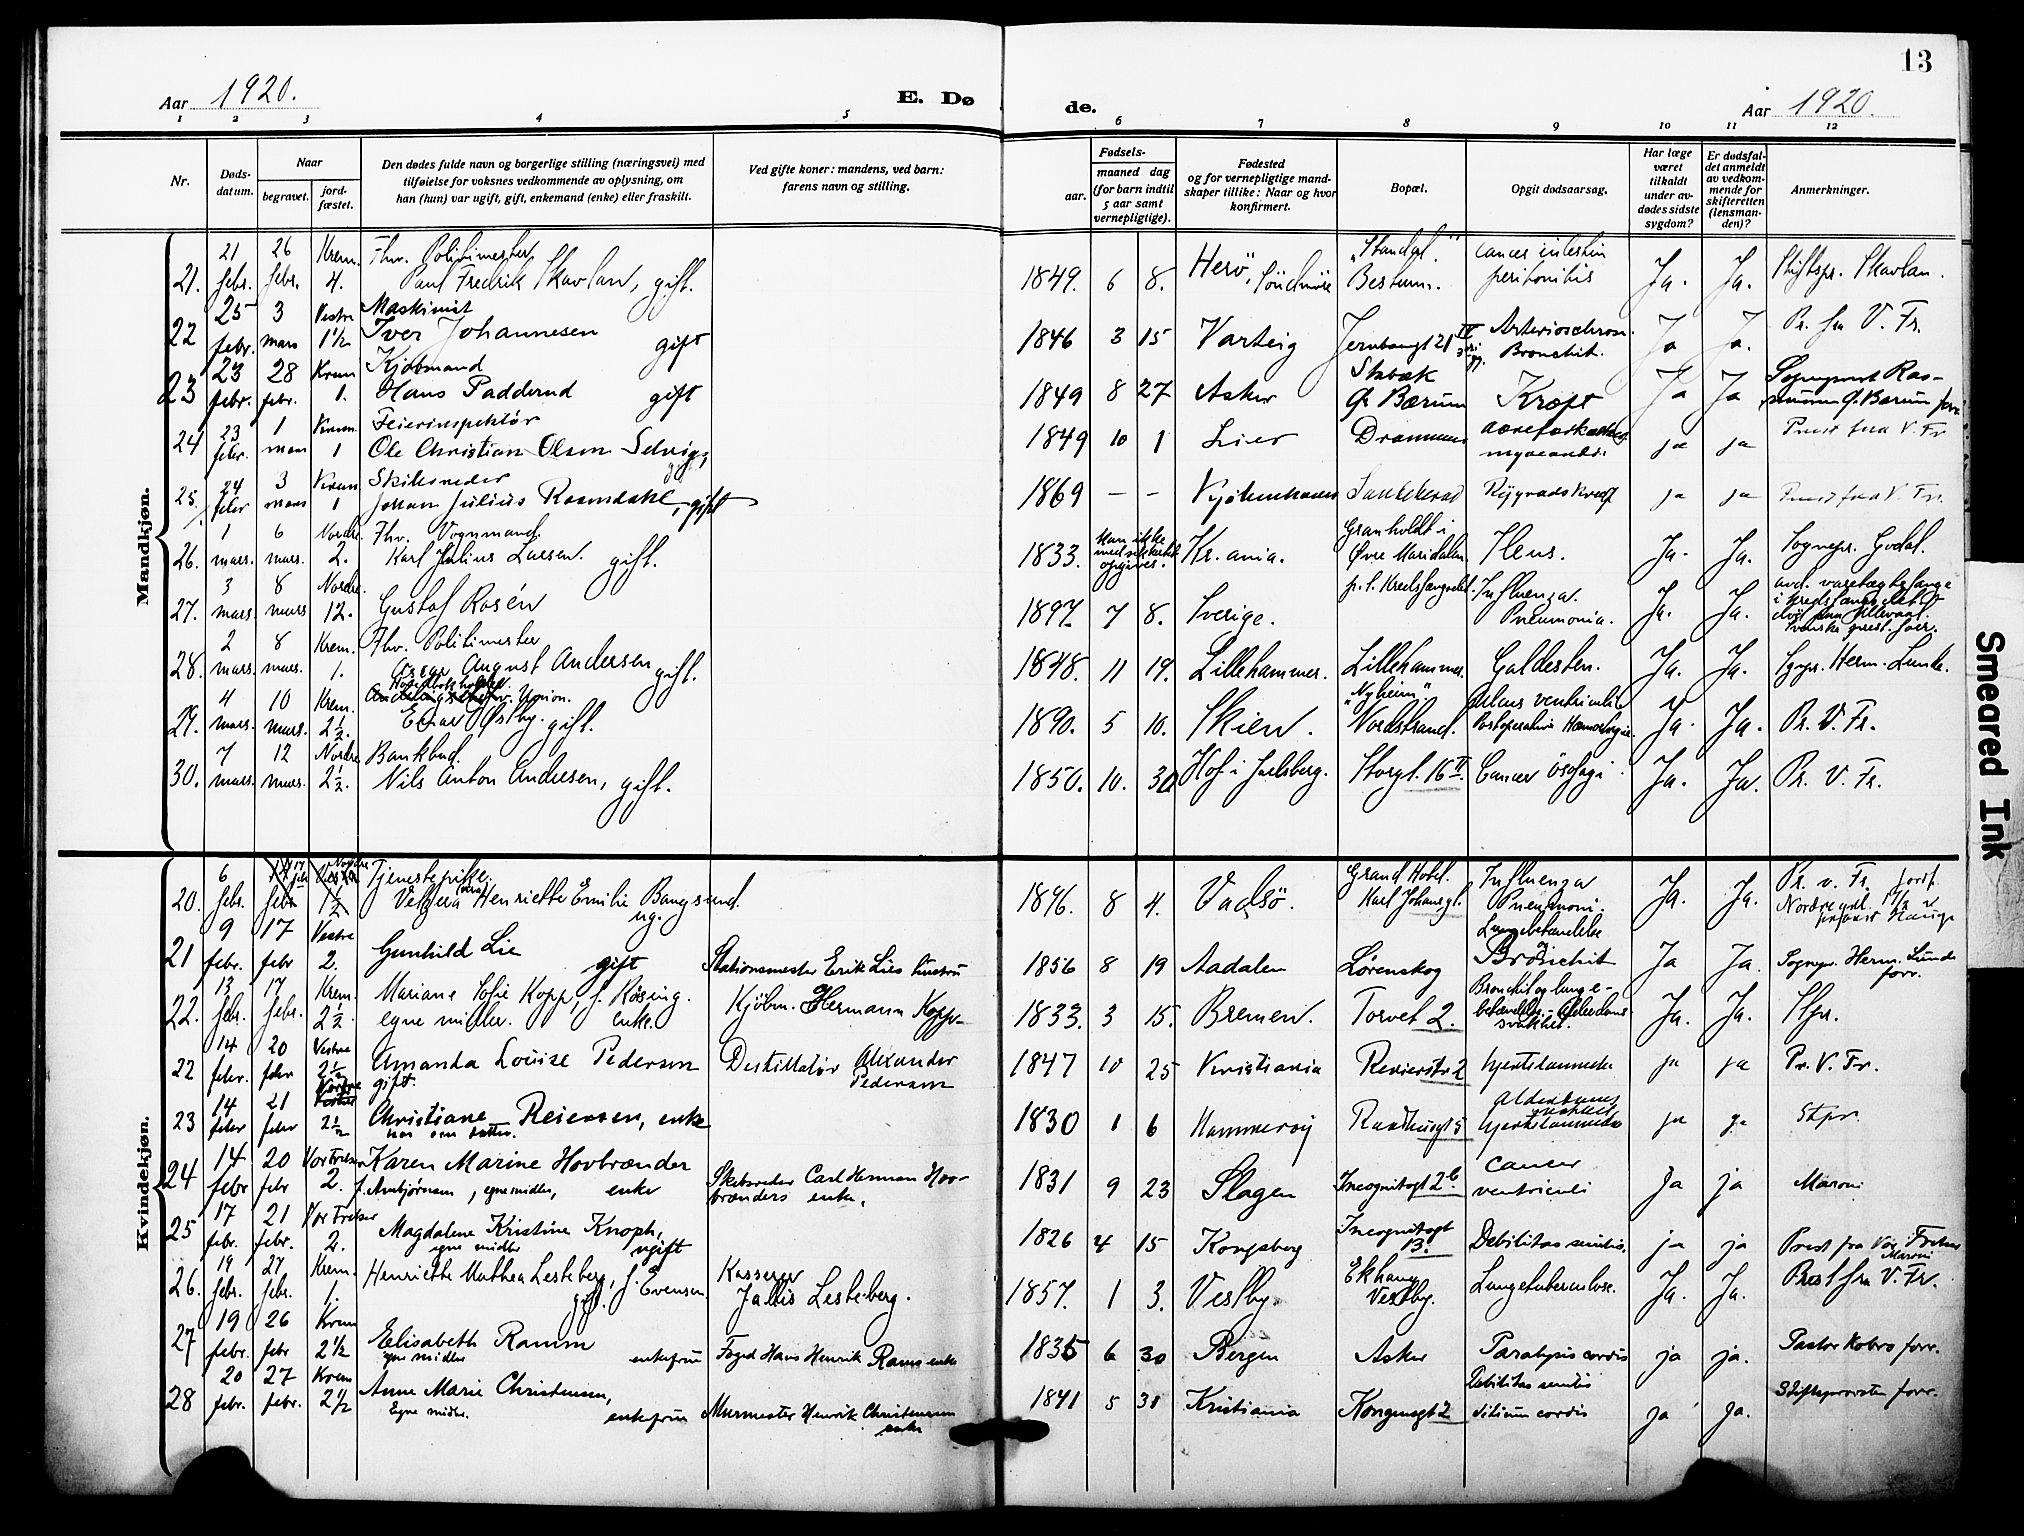 13
Aar 1920.
E. Dø de.
Aar 1920.
1 2 3 4 5 6 7 8 9 10 11 12
Nr.
Døds-datum.
Naar
begravet.
jord-fæstet.
Den dødes fulde navn og borgerlige stilling (næringsvei) med
tilføielse for voksnes vedkommende av oplysning, om
han (hun) var ugift, gift, enkemand (enke) eller fraskilt.
Ved gifte koner: mandens, ved barn:
farens navn og stilling.
Fødsels-
aar.
maaned dag
(for barn indtil
5 aar samt
vernepligtige).
Fødested
og for vernepligtige mand-
skaper tillike: Naar og hvor
konfirmert.
Bopæl.
Opgit dødsaarsag.
Har læge
været
tilkaldt
under av-
dødes sidste
sygdom?
Er dødsfal-
det anmeldt
av vedkom-
mende for
skifteretten
(lensman-
den)?
Anmerkninger.
Mandkjøn.
21. 21 febr. 26 febr. Krem. 4. Fhv. Politimester Paul Fredrik Skavlan, gift. 1849. 6 8. Herö, Söndmöre Bestum. cancer intestin peritonitis Ja. Ja. Stiftspr. Skavlan.
22 25 febr. 3 mars Vestre 1½ Maskinist Iver Johannesen gift 1846 3 15 Varteig Jernbangt 21 IV Bronchit. Ja Ja. Pr. fra V. Fr.
23 23 febr. 28 febr. Krem 1. Kjøbmand Hans Padderud gift 1849 8 27 Asker Stabæk Ø. Bærum Kræft Ja Ja
24 23 febr. 1 mars Krem. 1 Feierinspektør Ole Christian Olsen Selvig, gift 1849 10 1 Lier Drammen ja ja Prest fra V. Fr
25. 24 febr 3 mars Krem 1 Johan Julius Rosendahl, gift 1869 — — Kjøbenhavn Rygradskræft ja ja Prest fra V. Fr.
26. 1 mars. 6 mars. Nordre. 2. Fhv. Vognmand. Karl Julius Larsen. gift. 1833. Kan ikke med sikkerhet opgives. Kr.ania. Granholdt i Øvre Maridalen. Ileus. Ja. Ja. Sognepr. Godal.
27. 3 mars 8 mars Nordre. 12. Gustaf Rosén 1897 7 8. Sverige. p. t. Kredsfængselet. Influenza. Pneumonia. Ja. Ja.
28. 2 mars. 8 mars. Krem. 1. Fhv. Politimester Oscar August Andersen gift. 1848. 11 19. Lillehammer. Lillehammer. Galdesten. Ja. Ja. Sgpr. Herm. Lunde.
29. 4 mars. 10 mars. Krem. 2½. Einar Østby. gift. 1890. 5 10. Skien. "Nyheim". Nordstrand. Ulcus ventriculi Postoperativ Hæmorhagie. Ja. Ja. Pr. V. Fr.
30. 7 mars. 12 mars. Nordre 2½. Bankbud. Nils Anton Andresen, gift. 1850. 10. 30 Hof i Jarlsberg. Storgt. 16 II. Cancer ösofagi Ja. Ja. Pr. V. Fr.
Kvindekjøn.
20. 6 febr. febr Nordre 1½ Tjenestepike. Henriette Emilie Bangsund. ug. 1896. 8 4. Vadsö. Grand Hotel. Karl Johansgt. Influenza Pneumoni. Ja. Ja. Pr. v. Fr. forr.
21 9 febr. 17 febr Vestre 2. Gunhild Lie gift Stationsmester Erik Lies hustru 1856 8 19 Aadalen Lørenskog Lungebetændelse og Bronchit Ja Ja. Sognepr. Herm. Lunde forr.
22. 13 febr. 17 febr. Krem. 2½. Mariane Sofie Kopp, f. Kösing. egne midler. enke. Kjöbm. Hermann Kopp 1833. 3 15. Bremen. Torvet 2. Bronkit og lunge-betændelse. Alderdoms svakhet. Ja. Ja. Stpr.
22 14 febr. 20 febr Vestre 2½ Amanda Louise Pedersen gift. Destillatør Alexander Pedersen 1847 10 25 Kristiania Revierstr 2 hjertelammelse ja ja Pr. V. Fr.
23 14 febr 21 febr Nordre 2½ Christiane Reiersen, enke hos sin datter. 1830 1 6 Hammerøy Raadhusgt 5 Alderdoms svakhet hjertelammelse ja ja Stpr.
24 14 febr 20 febr Vor Frelser 2. Karen Marine Hovbrænder f. Arnbjørnsen, egne midler, enke Skibsreder Carl Herman Hov-brænders enke. 1831 9 23 Slagen Incognitogt 2b cancer ventriculi Ja ja Maroni
25 17 febr. 21 febr. Vor Frelser 2. Magdalene Kristine Knoph, egne midler ugift 1826 4 15 Kongsberg Incognitogt 13. Debilitas senilis. ja ja Prest fra Vor Frelser Maroni
26. 19 febr. 27 febr. Krem. 1. Henriette Mathea Lesteberg, f. Evensen. gift. Kasserer Lesteberg. 1857. 1 3. Vestby. Ekhaug Vestby. Lungetuberkulose. Ja. Ja. Prest fra V. Fr.
27 19 febr. 26 febr Krem 2½ Elisabeth Ramm egne midler enkefrue Foged Hans Henrik Rams enke 1835 6 30 Bergen Asker Paralysis cordis ja ja. Pastor Kobro forr.
28 20 febr. 27 febr. Krem 2½ Anne Marie Christensen, Egne midler. enkefrue Murmester Henrik Christensens enke 1841 5 31 Kristiania Kongensgt 2 Debilitas senilis Vitium cordis ja ja. Stiftsprovsten forr.
Smeared Ink